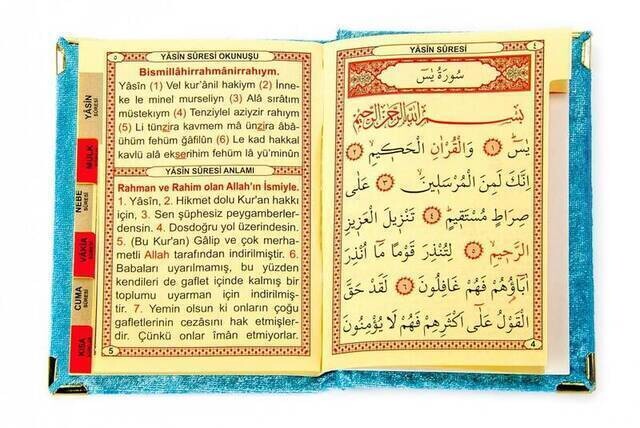 ٥
YÂSİN SÛRESİ OKUNUŞU
Bismillâhirrahmânirrahıym.
Yâsîn (1) Vel kur'ânil hakiym (2) İnne-
ke le minel murseliyn (3) Alâ sırâtım
müstekıym (4) Tenziylel aziyzir rahıym
(5) Li tünzira kavmem mâ ünzira âbâ-
ühüm fehüm ğâfilûn (6) Le kad hakkal
kavlü alâ ekserihim fehüm lâ yü'minûn
YÂSİN SÛRESİ ANLAMI
Rahman ve Rahim olan Allah'ın İsmiyle.
1. Yâsîn, 2. Hikmet dolu Kur'an hakkı
için, 3. Sen şüphesiz peygamberler-
densin. 4. Dosdoğru yol üzerindesin.
5. (Bu Kur'an) Gâlip ve çok merha-
metli Allah tarafından indirilmiştir. 6.
Babaları uyarılmamış, bu yüzden
kendileri de gaflet içinde kalmış bir
toplumu uyarman için indirilmiş-
tir. 7. Yemin olsun ki onların çoğu
gafletlerinin cezasını hak etmişler-
dir. Çünkü onlar îmân etmiyorlar.
5
YÂSİN SÛRESİ
MÜLK
NEBE SÛRESİ
VÂKIA
CUMA SÛRESİ
KISA
YÂSİN SÛRESİ
٤
سُورَةُ يٰسٓ
بِسْمِ اللّٰهِ الرَّحْمٰنِ الرَّحِيمِ
يٰسٓ ﴿١﴾ وَالْقُرْاٰنِ الْحَكِيمِ ﴿٢﴾
اِنَّكَ لَمِنَ الْمُرْسَلِينَ ﴿٣﴾ عَلٰى
صِرَاطٍ مُسْتَقِيمٍ ﴿٤﴾ تَنْزِيلَ الْعَزِيزِ
الرَّحِيمِ ﴿٥﴾ لِتُنْذِرَ قَوْمًا مَا اُنْذِرَ
اٰبَاؤُهُمْ فَهُمْ غَافِلُونَ ﴿٦﴾ لَقَدْ حَقَّ
الْقَوْلُ عَلٰٓى اَكْثَرِهِمْ فَهُمْ لَا يُؤْمِنُونَ
4